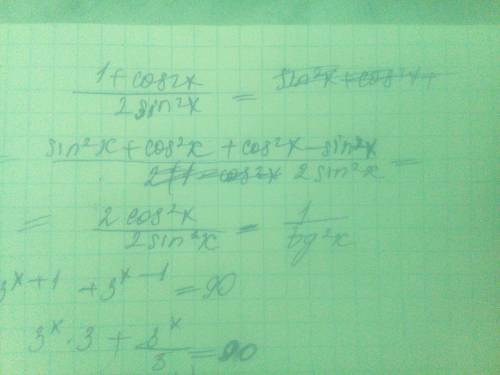 (1 + cos2x) / (2 sin²x) =
= (sin²x + cos²x + cos²x - sin²x) / (2 sin²x) =
= (2 cos²x) / (2 sin²x) = 1 / tg²x
3^(x+1) + 3^(x-1) = 90
3^x · 3 + 3^x / 3 = 90